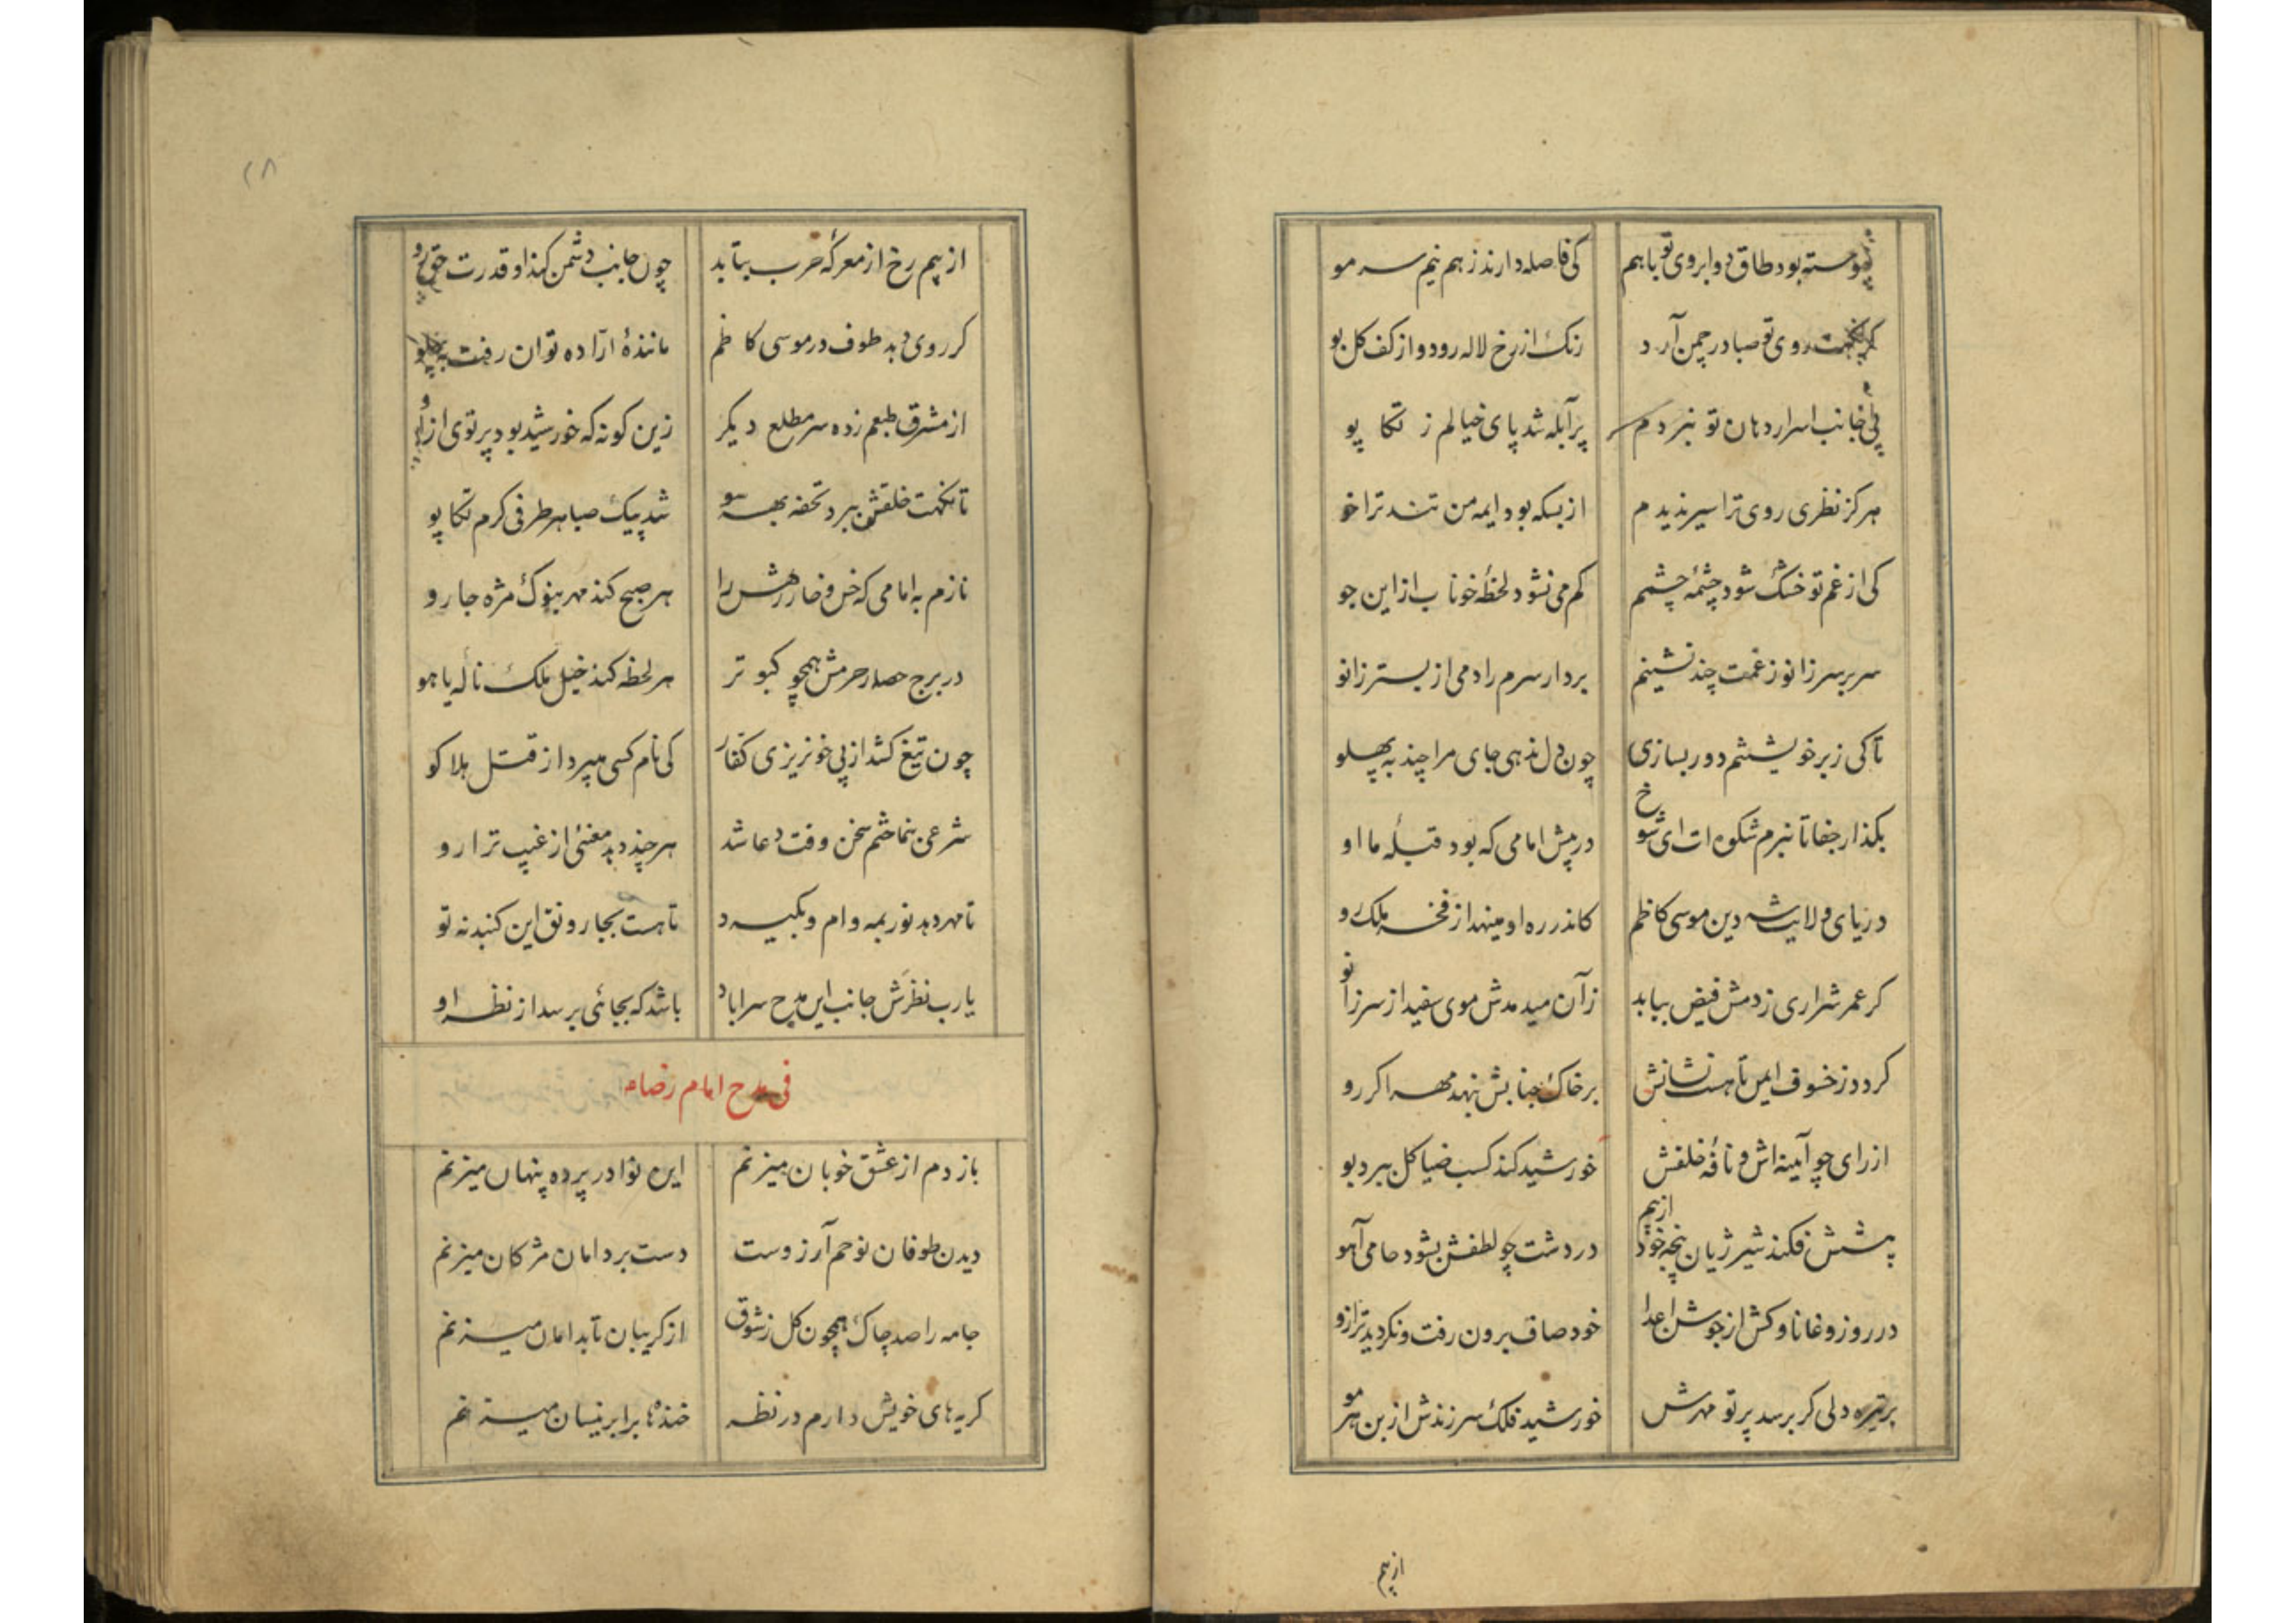 پیوسته بود طاق دو ابروی تو با هم کی فاصله دارند ز هم نیم سر مو
کر نکهت روی تو صبا در چمن آرد رنک از رخ لاله رود و از کف کل بو
پی جانب اسرار دهان تو نبردم پر آبله شد پای خیالم ز تکا پو
هرکز نظری روی ترا سیر ندیدم از بسکه بود ایمه من تند ترا خو
کی از غم تو خشک شود چشمهٔ چشمم کم می نشود لحظهٔ خوناب از این جو
سر بر سر زانو ز غمت چند نشینم بردار سرم را دمی از بستر زانو
تا کی ز بر خویشتنم دور بسازی چون دل ندهی جای مرا چند به پهلو
بکذار جفا تا نبرم شکوه ات ای شوخ در پیش امامی که بود قبلهٔ ما او
دریای ولایت شه دین موسی کاظم کاندر ره او مینهد از فخر ملک رو
کر عمر شراری ز دمش فیض بیابد زآن میدمدش موی سفید از سر زانو
کردد ز خسوف ایمن تا هست نشانش بر خاک جنابش بنهد مهر اکر رو
از رای چو آیینه اش و نافهٔ خلقش خورشید کند کسب ضیا کل ببرد بو
پیشش فکند شیر ژیان پنجه خود از بیم در دشت چو لطفش بشود حامی آهو
در روز وغا ناوکش از جوشن اعدا خود صاف برون رفت و نکردید ترازو
بر تیره دلی کر برسد پرتو مهرش خورشید فلک سر زندش از بن هر مو
از بیم
۲۸
از بیم رخ از معرکه حرب بتابد چون جانب دشمن کند او قدرت حق رو
کر روی دهد طوف در موسی کاظم مانندهٔ آزاده توان رفت به پهلو
از مشرق طبعم زده سر مطلع دیکر زین کونه که خورشید بود پرتوی از او
تا نکهت خلقش ببرد تحفه بهر سو شد پیک صبا هر طرفی کرم تکاپو
نازم به امامی که خس و خار رهش را هر صبح کند مهر بنوک مژه جارو
در برج حصار حرمش همچو کبوتر هر لحظه کند خیل ملک نالهٔ یا هو
چون تیغ کشد از پی خونریزی کفار کی نام کسی میبرد از قتل هلاکو
شرعی بنما ختم سخن وقت دعا شد هر چند دهد معنی از غیب ترا رو
تا مهر دهد نور بمه وام و بکیرد تا هست بجا رونق این کنبد نه تو
یا رب نظرش جانب این مدح سرا باد باشد که بجائی برسد از نظر او
فی مدح امام رضا ع
باز دم از عشق خوبان میزنم این نوا در پرده پنهان میزنم
دیدن طوفان نوحم آرزوست دست بر دامان مژکان میزنم
جامه را صد چاک همچون کل ز شوق از کریبان تا بدامان میزنم
کریه های خویش دارم در نظر خنده ها بر ابر نیسان میزنم